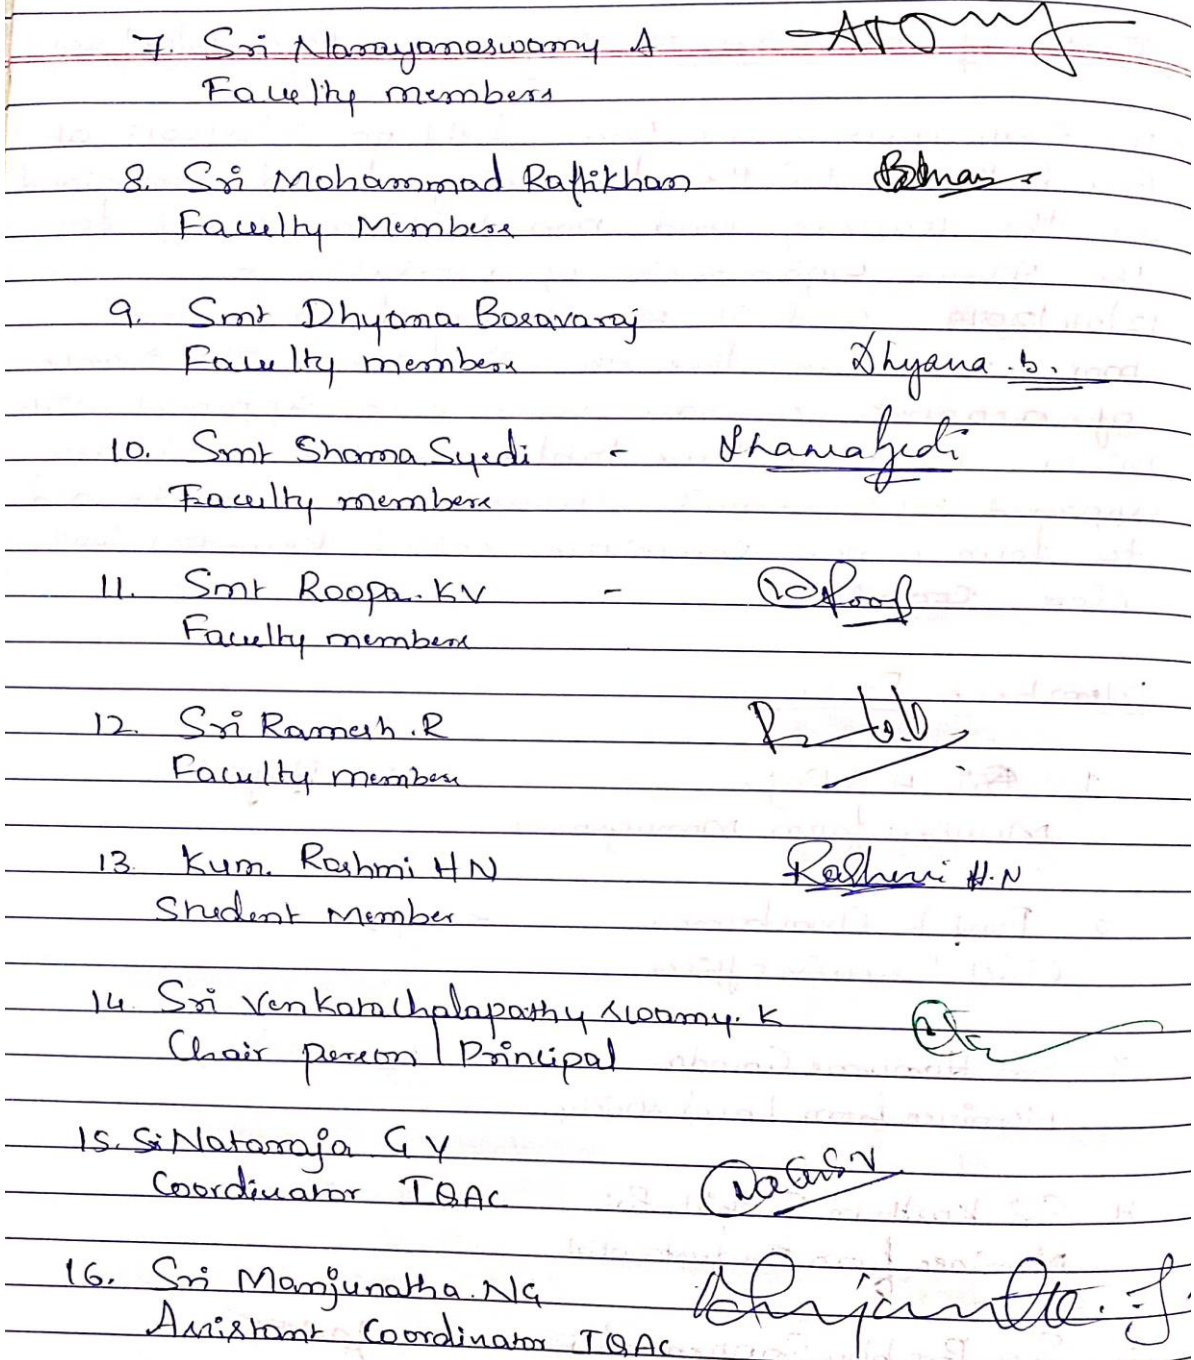 7. Sri Narayanaswamy A
Faculty members
8. Sri Mohammad Raffikhan
Faculty Members
9. Smt Dhyana Basavaraj
Faculty members
Dhyana .b.
10. Smt Shama Syedi - Shamasyedi
Faculty members
11. Smt Roopa. KV -
Faculty members
12. Sri Ramesh .R
Faculty members
13. Kum. Rashmi H N Rashmi H.N
Student Member
14. Sri Venkatachalapathy swamy. K
Chair person | Principal
15. Sri Nataraja G V
Coordinator IQAC
16. Sri Manjunatha. NG
Assistant Coordinator IQAC